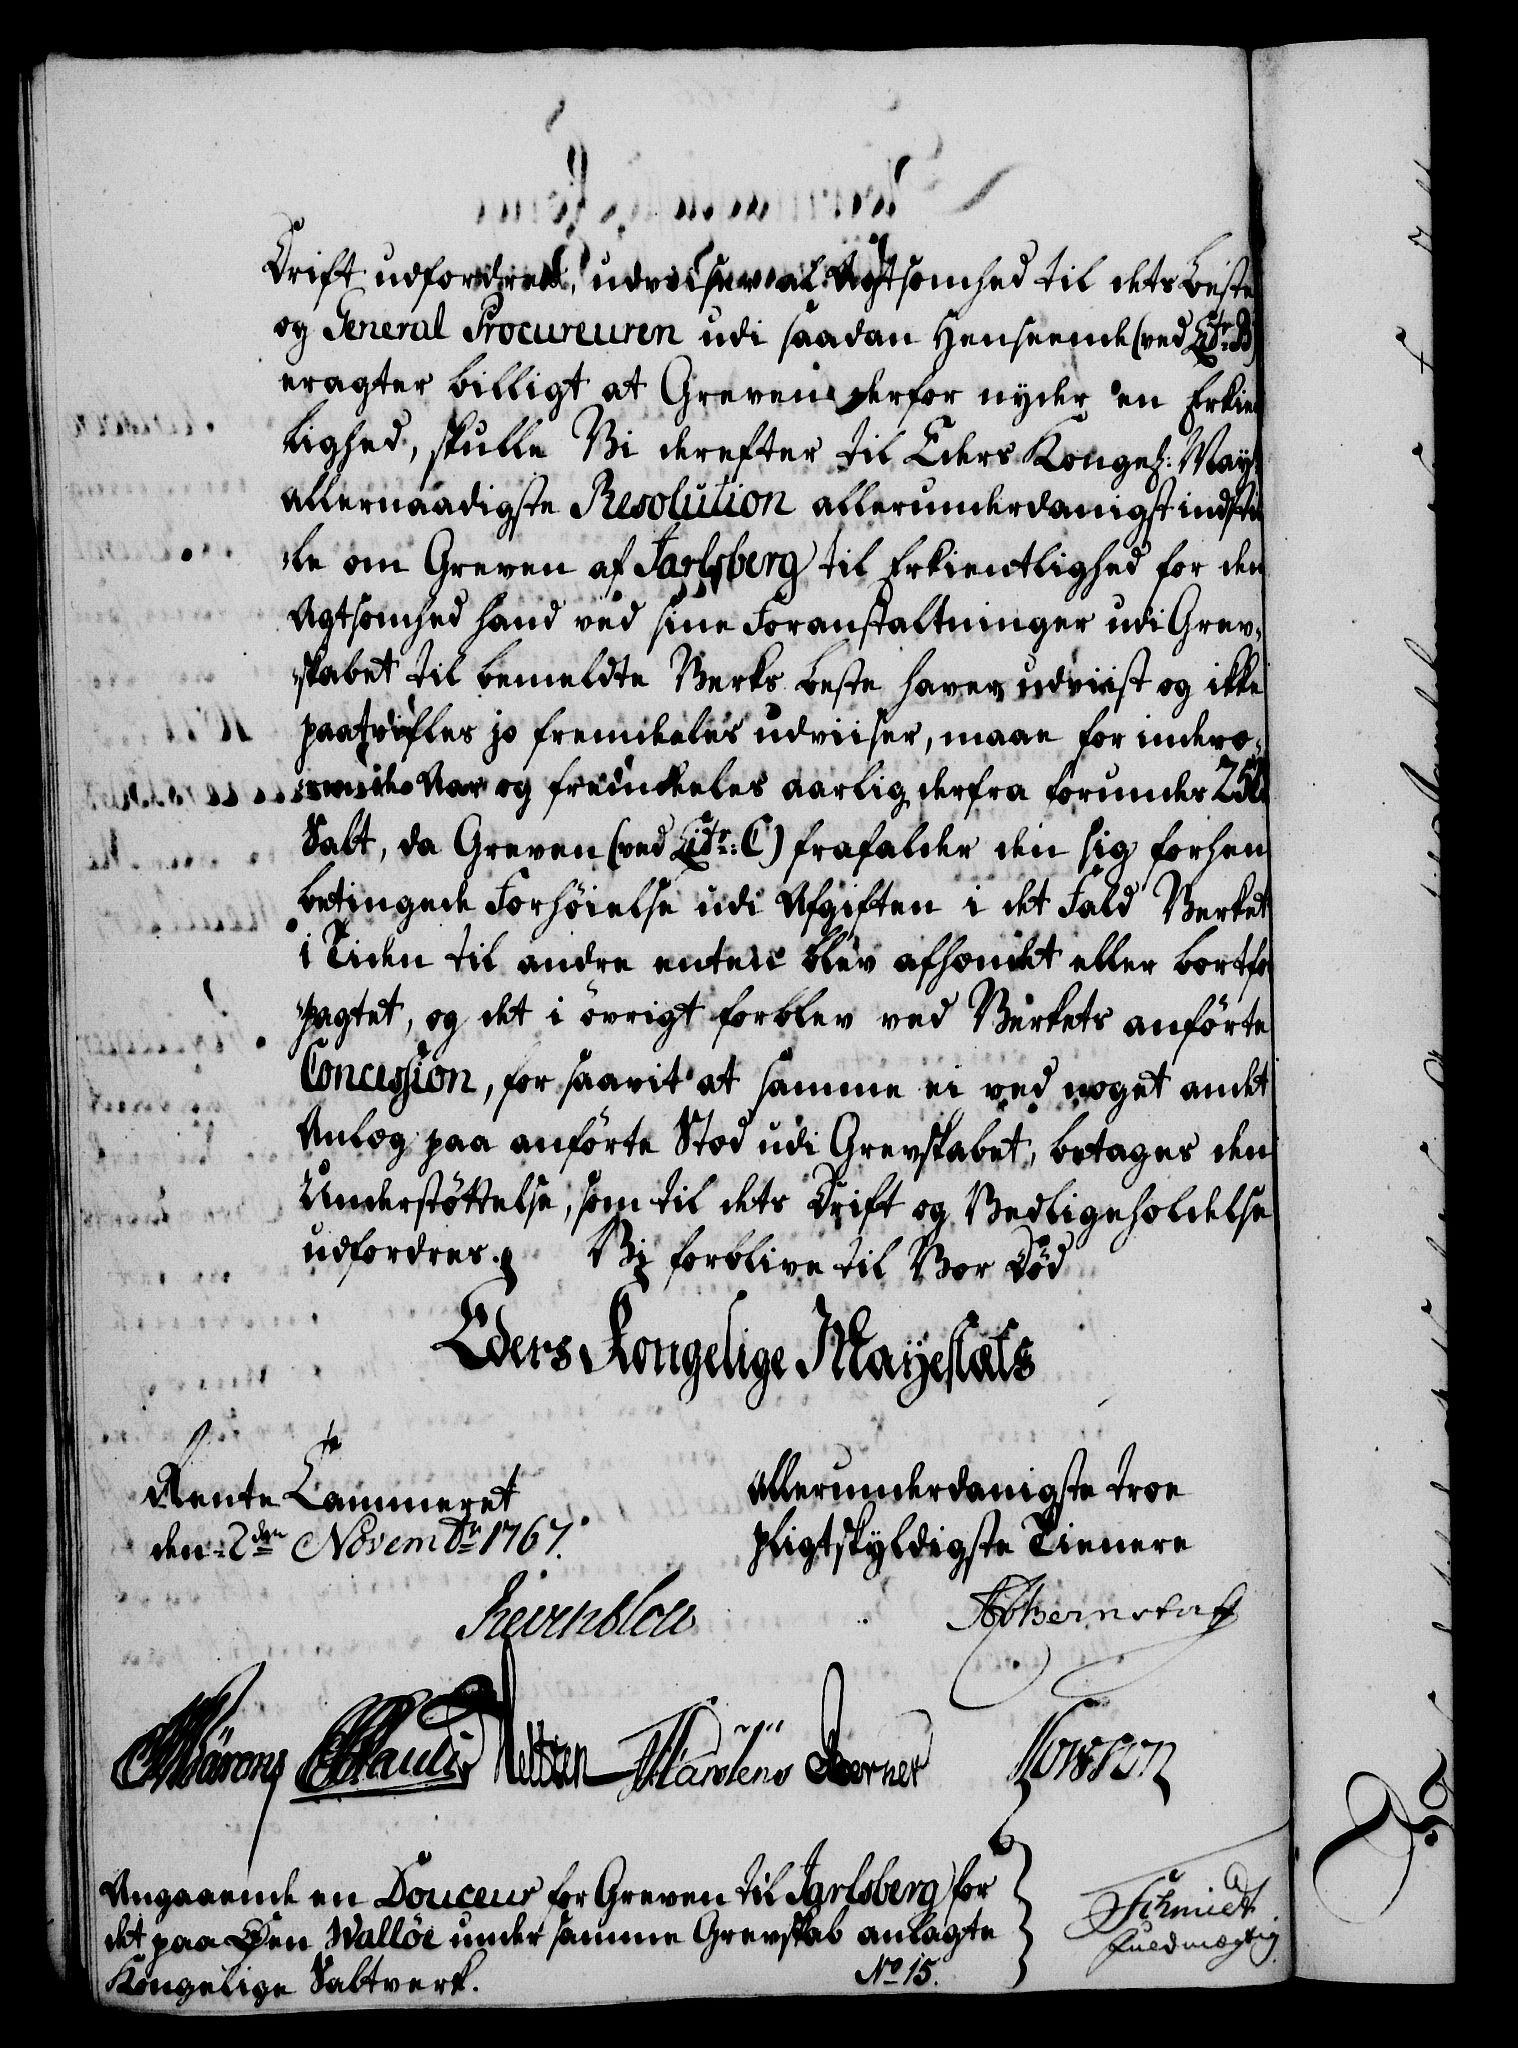 Drift udfordres, udviiser al Agtsomhed til dets beste
og General Procureuren udi saadan Henseende (ved Litr: B)
eragter billigt at Greven derfor nyder en Erkien
lighed, skulle Vi derefter til Eders Kongel: May:
allernaadigste Resolution allerunderdanigst indstil
le om Greven af Jarlsberg til Erkientlighed for den
Agtsomhed hand ved sine Foranstaltninger udi Grev-
skabet til bemeldte Verks beste haver udviist og ikke
paatvifles jo fremdeeles udviiser, maae for indevæ-
rende Aar og fremdeeles aarlig derfra forundes 25
Salt, da Greven (ved Litr: C) frafalder den sig forhen
betingede Forhöielse udi Afgiften i det Fald Verket
i Tiden til andre enten blev afhændet eller bortfor
pagtet, og det i övrigt forblev ved Verkets anförte
Concession, for saavit at samme ei ved noget andet
Anlæg paa anförte Stæd udi Grevskabet, betages den
Understöttelse, som til dets Drift og Vedligeholdelse
udfordres. Vi forblive til Vor Död
Eders Kongelige Mayestæts
Rente Cammeret
den 2den Novembr 1767.
allerunderdanigste troe
pligtskyldigste Tienere
Bernstorff
Pauli Neltzen Martens Berner
Angaaende en Douceur for Greven til Jarlsberg for
det paa Öen Wallöe under samme Grevskab anlagte
Kongelige Saltverk. No 15.
Schmidt
fuldmægtig